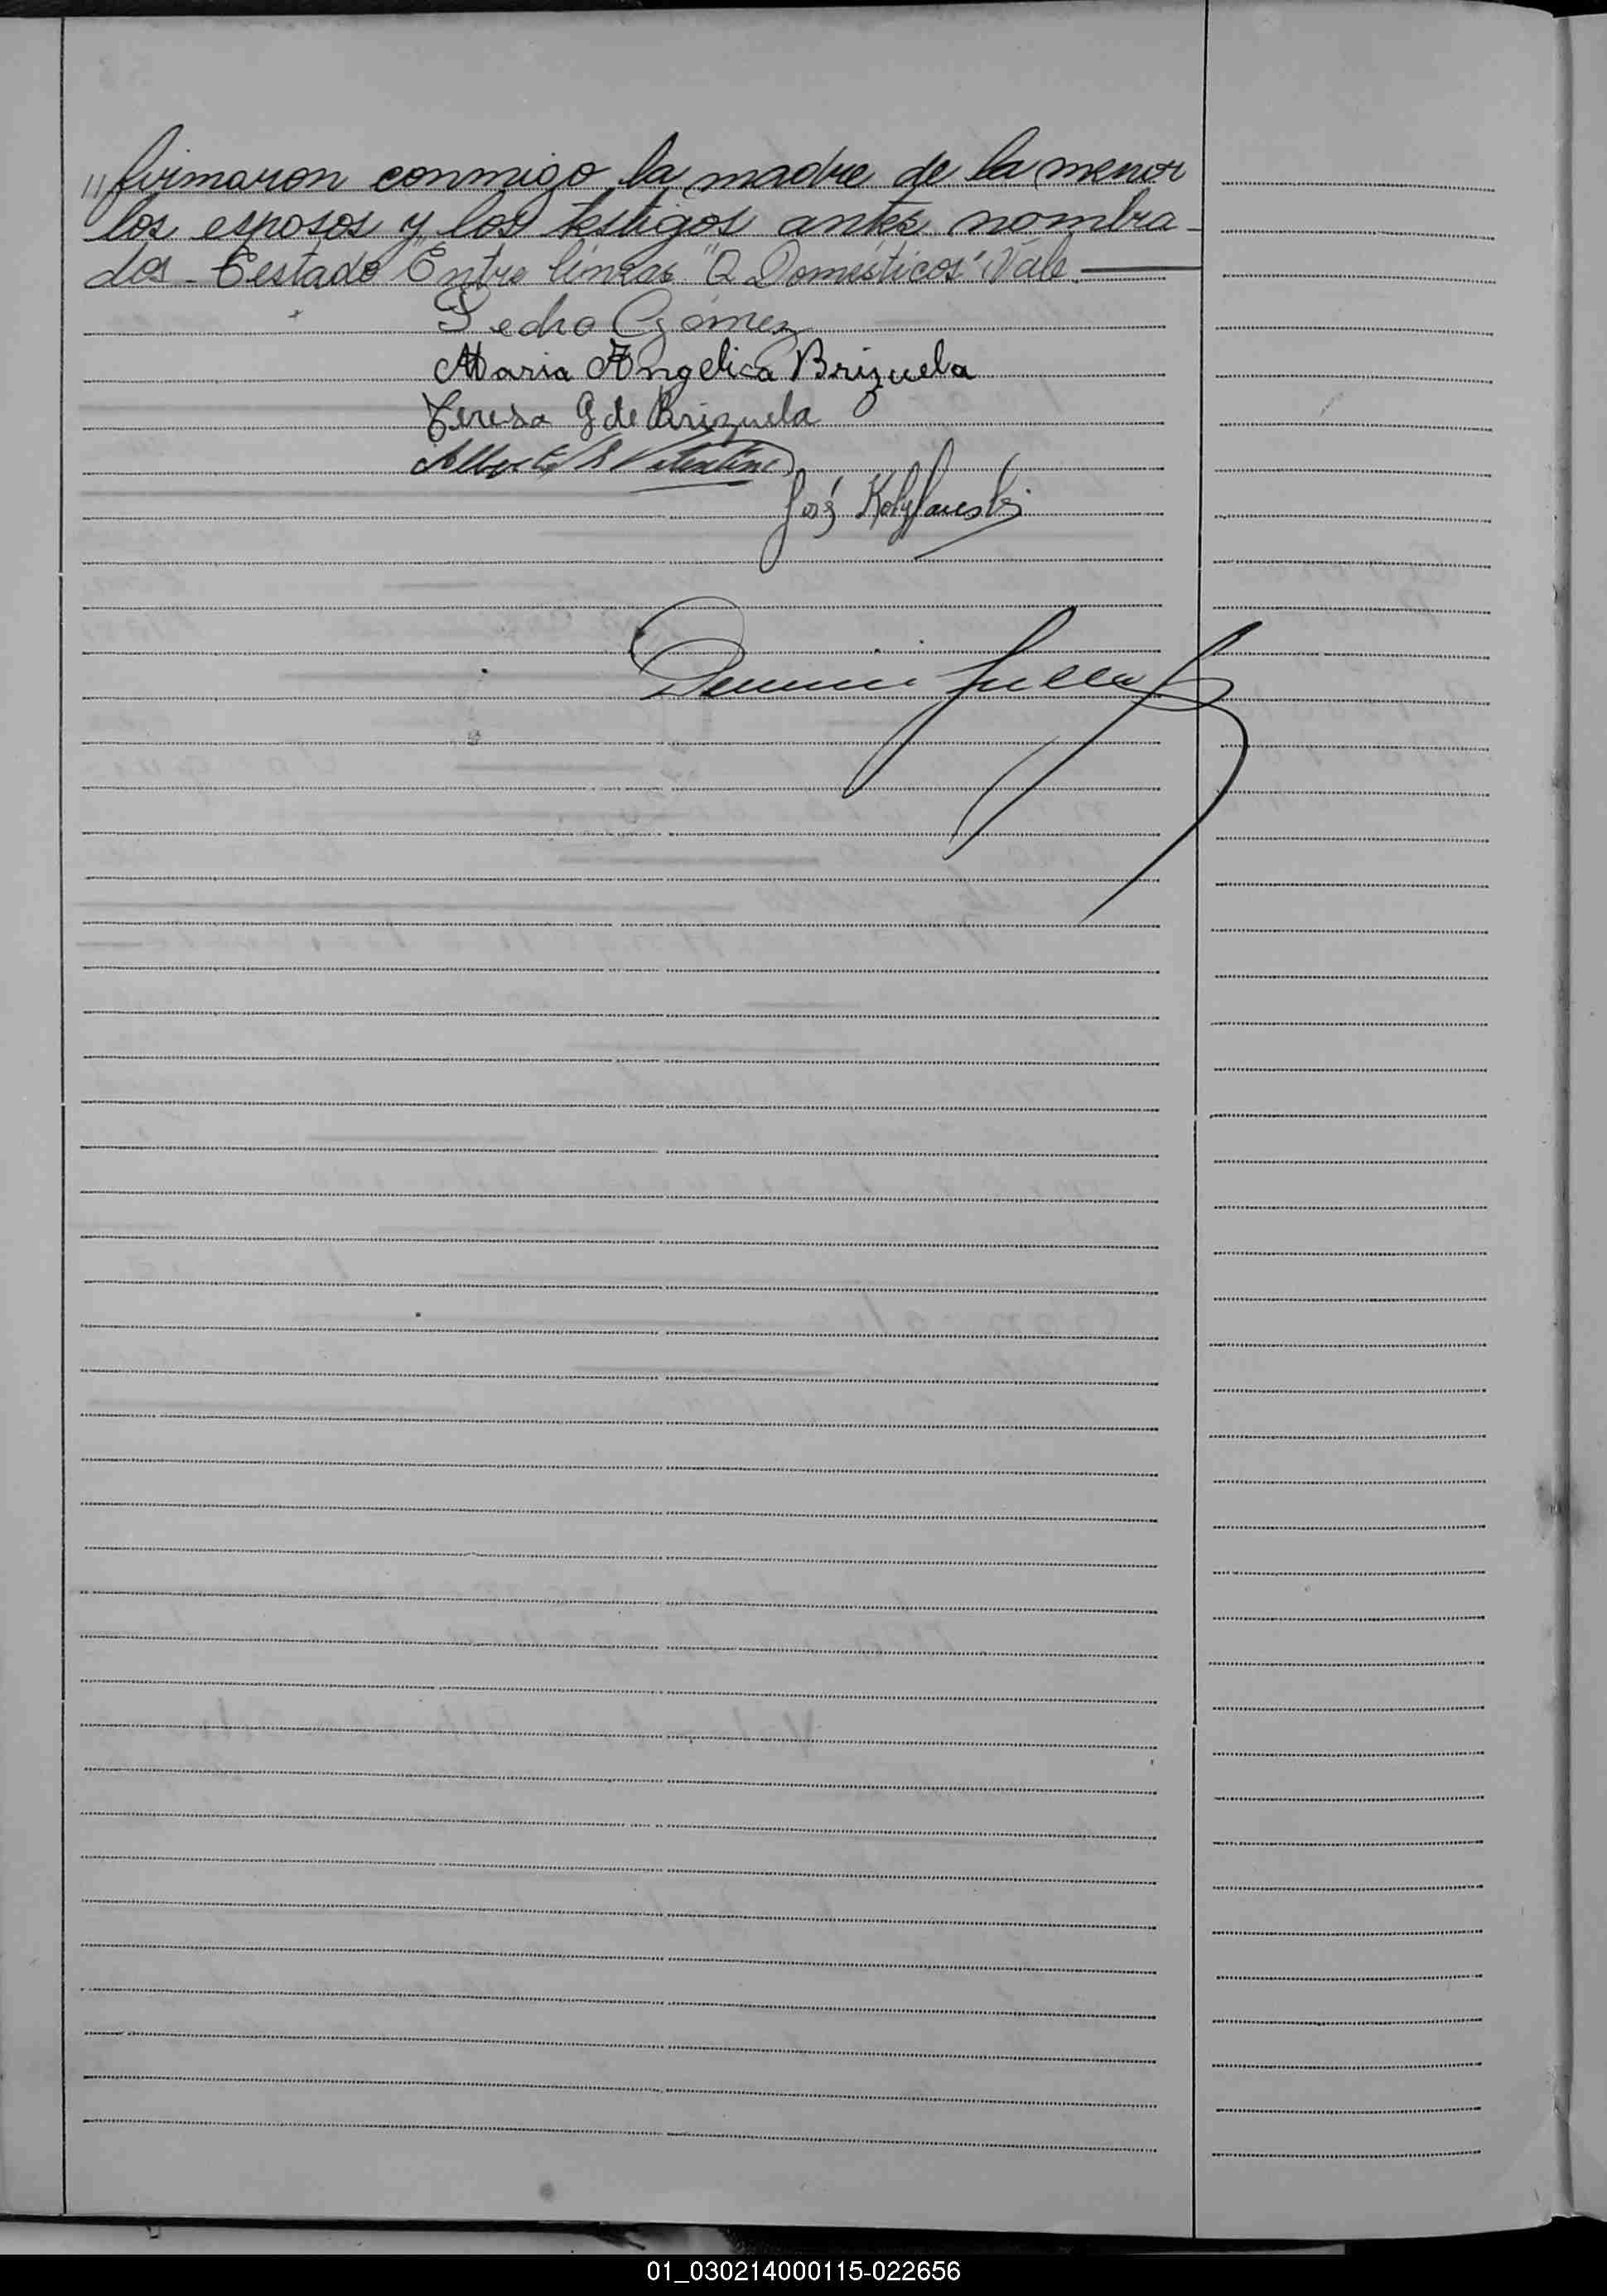 "firmaron conmigo la madre de la menor
los esposos y los testigos antes nombra-
dos - Testado Entre líneas "Q Domésticos" Vale.
Pedro Gómez
Maria Angelica Brizuela
Teresa G de Brizuela
Alberto
José
01_030214000115-022656